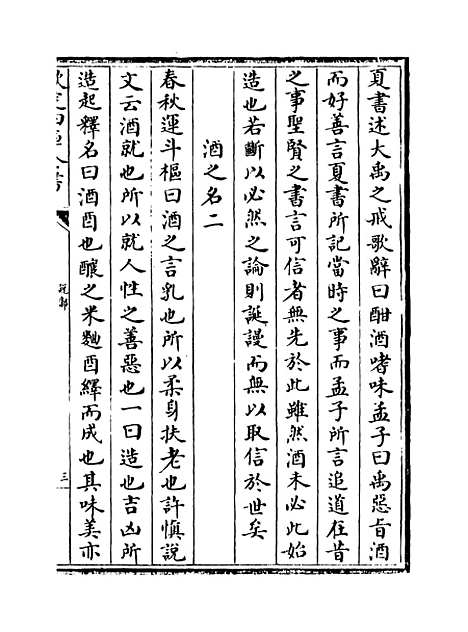 夏書述大禹之戒歌辭曰酣酒嗜味孟子曰禹惡旨酒
而好善言夏書所記當時之事而孟子所言追道在昔
之事聖賢之書言可信者無先於此雖然酒未必此始
造也若斷以必然之論則誕謾而無以取信於世矣
酒之名二
春秋運斗樞曰酒之言乳也所以柔身扶老也許慎說
文云酒就也所以就人性之善惡也一曰造也吉凶所
造起釋名曰酒酉也釀之米麴酉繹而成也其味美亦
欽定四庫全書
說郛
三